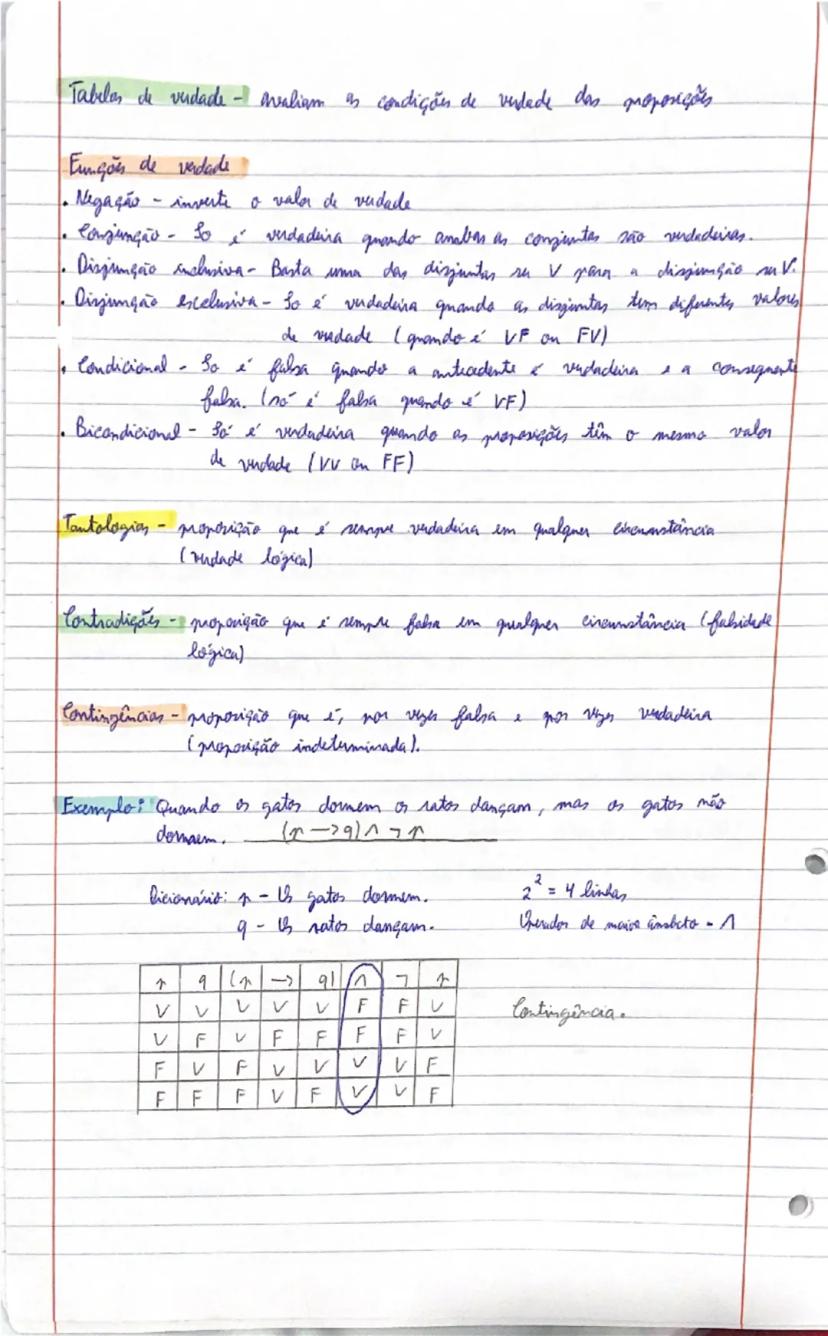 Tabelas de verdade - avaliam as condições de verdade das proposições
Funções de verdade
• Negação - inverte o valor de verdade
• Conjunção - So é verdadeira quando ambas as conjuntas são verdadeiras.
• Disjunção inclusiva - Basta uma das disjuntas ser V para a disjunção ser V.
• Disjunção exclusiva - So é verdadeira quando as disjuntas tem diferentes valores
de verdade (quando é VF ou FV)
• Condicional - So é falsa quando a antecedente é verdadeira e a consequente
falsa. (só é falsa quando é VF)
• Bicondicional - Só é verdadeira quando as proposições têm o mesmo valor
de verdade (VV ou FF)
Tautologias - proposição que é sempre verdadeira em qualquer circunstância
(verdade lógica)
Contradições - proposição que é sempre falsa em qualquer circunstância (falsidade
lógica)
Contingências - proposição que é, por vezes falsa e por vezes verdadeira
(proposição indeterminada).
Exemplo: Quando os gatos dormem os ratos dançam, mas os gatos não
dormem. (p → q) ∧ ¬ p
Dicionário: p - Os gatos dormem. 2² = 4 linhas
q - Os ratos dançam. Operador de maior âmbito - ∧
p q (p → q) ∧ ¬ p
V V V V V F F V
V F V F F F F V Contingência.
F V F V V V V F
F F F V F V V F